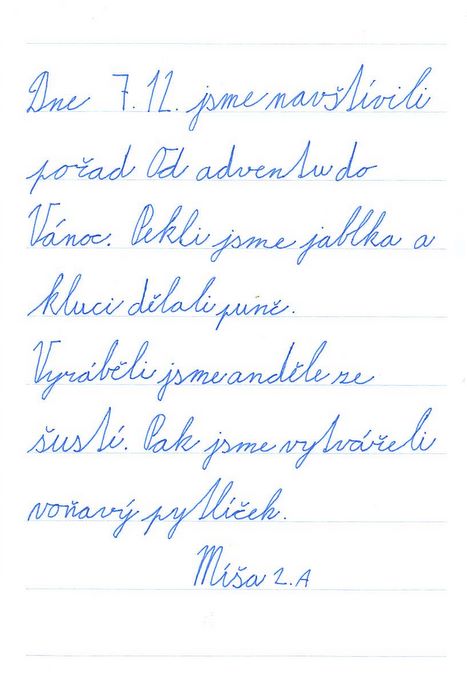 Dne 7.12. jsme navštívili
pořad Od adventu do
Vánoc. Pekli jsme jablka a
kluci dělali punč.
Vyráběli jsme anděle ze
šustí. Pak jsme vytvářeli
voňavý pytlíček.
Míša 2.A